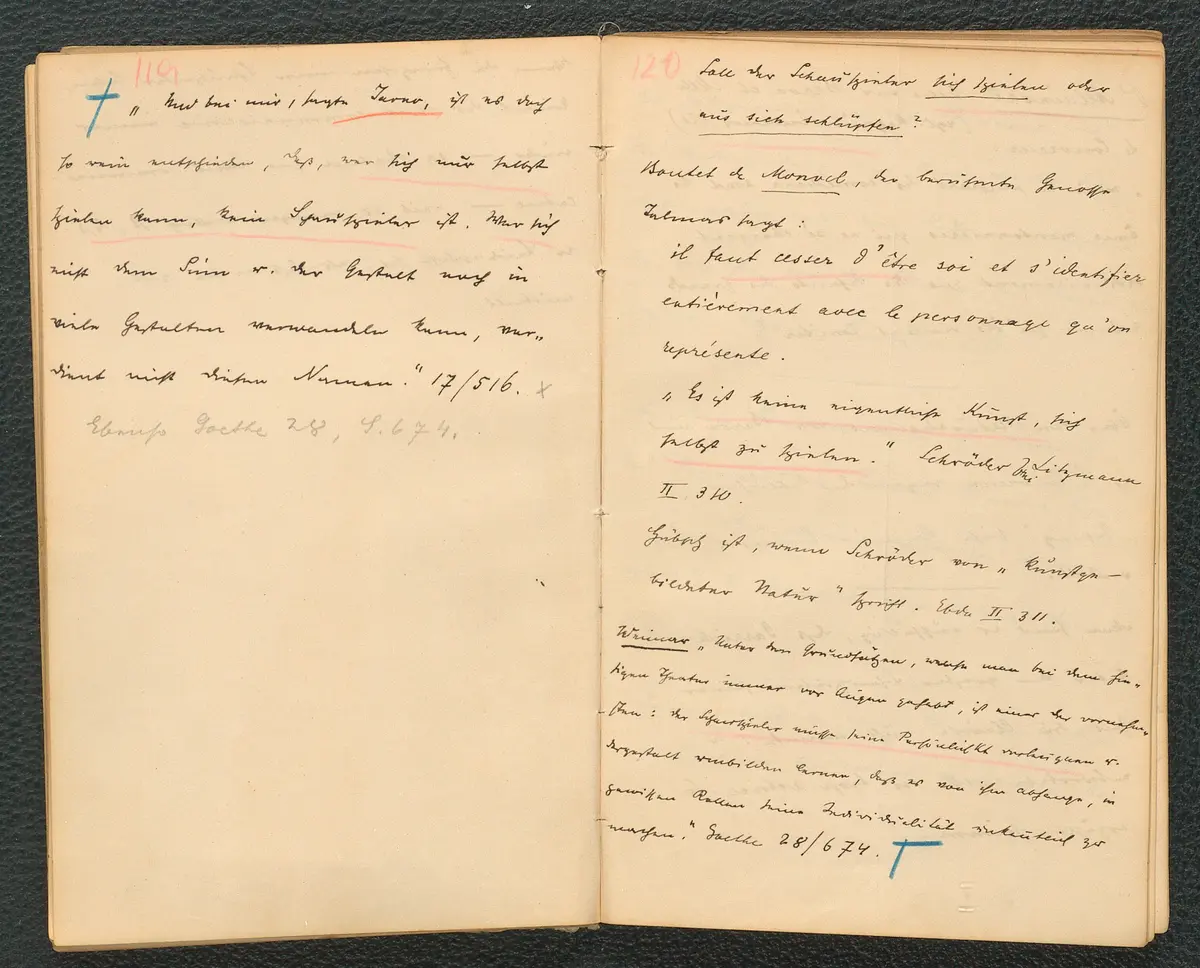 119
„Und bei mir, sagte Jarno, ist es doch
so rein entschieden, daß, wer sich nur selbst
spielen kann, kein Schauspieler ist. Wer sich
nicht dem Sinn u. der Gestalt nach in
viele Gestalten verwandeln kann, ver„
dient nicht diesen Namen.“ 17/516. x
Ebenso Goethe 28, S. 674.
120
Soll der Schauspieler sich spielen oder
aus sich schlüpfen?
Boutet de Monvel, der berühmte Genosse
Talmas sagt:
il faut cesser d'être soi et s'identifier
entiérement avec le personnage qu'on
représente.
„Es ist keine eigentliche Kunst, sich
selbst zu spielen.“ Schröder bei Litzmann
II 310.
Hübsch ist, wenn Schröder von „kunstge-
bildeter Natur“ spricht. Ebda II 311.
Weimar „Unter den Grundsätzen, welche man bei dem hie„
sigen Theater immer vor Augen gehabt, ist einer der vornehm„
sten: der Schauspieler müsse seine Persönlichkt verleugnen u.
dergestalt umbilden lernen, daß es von ihm abhange, in
gewissen Rollen seine Individualität unkenntlich zu
machen.“ Goethe 28/674.